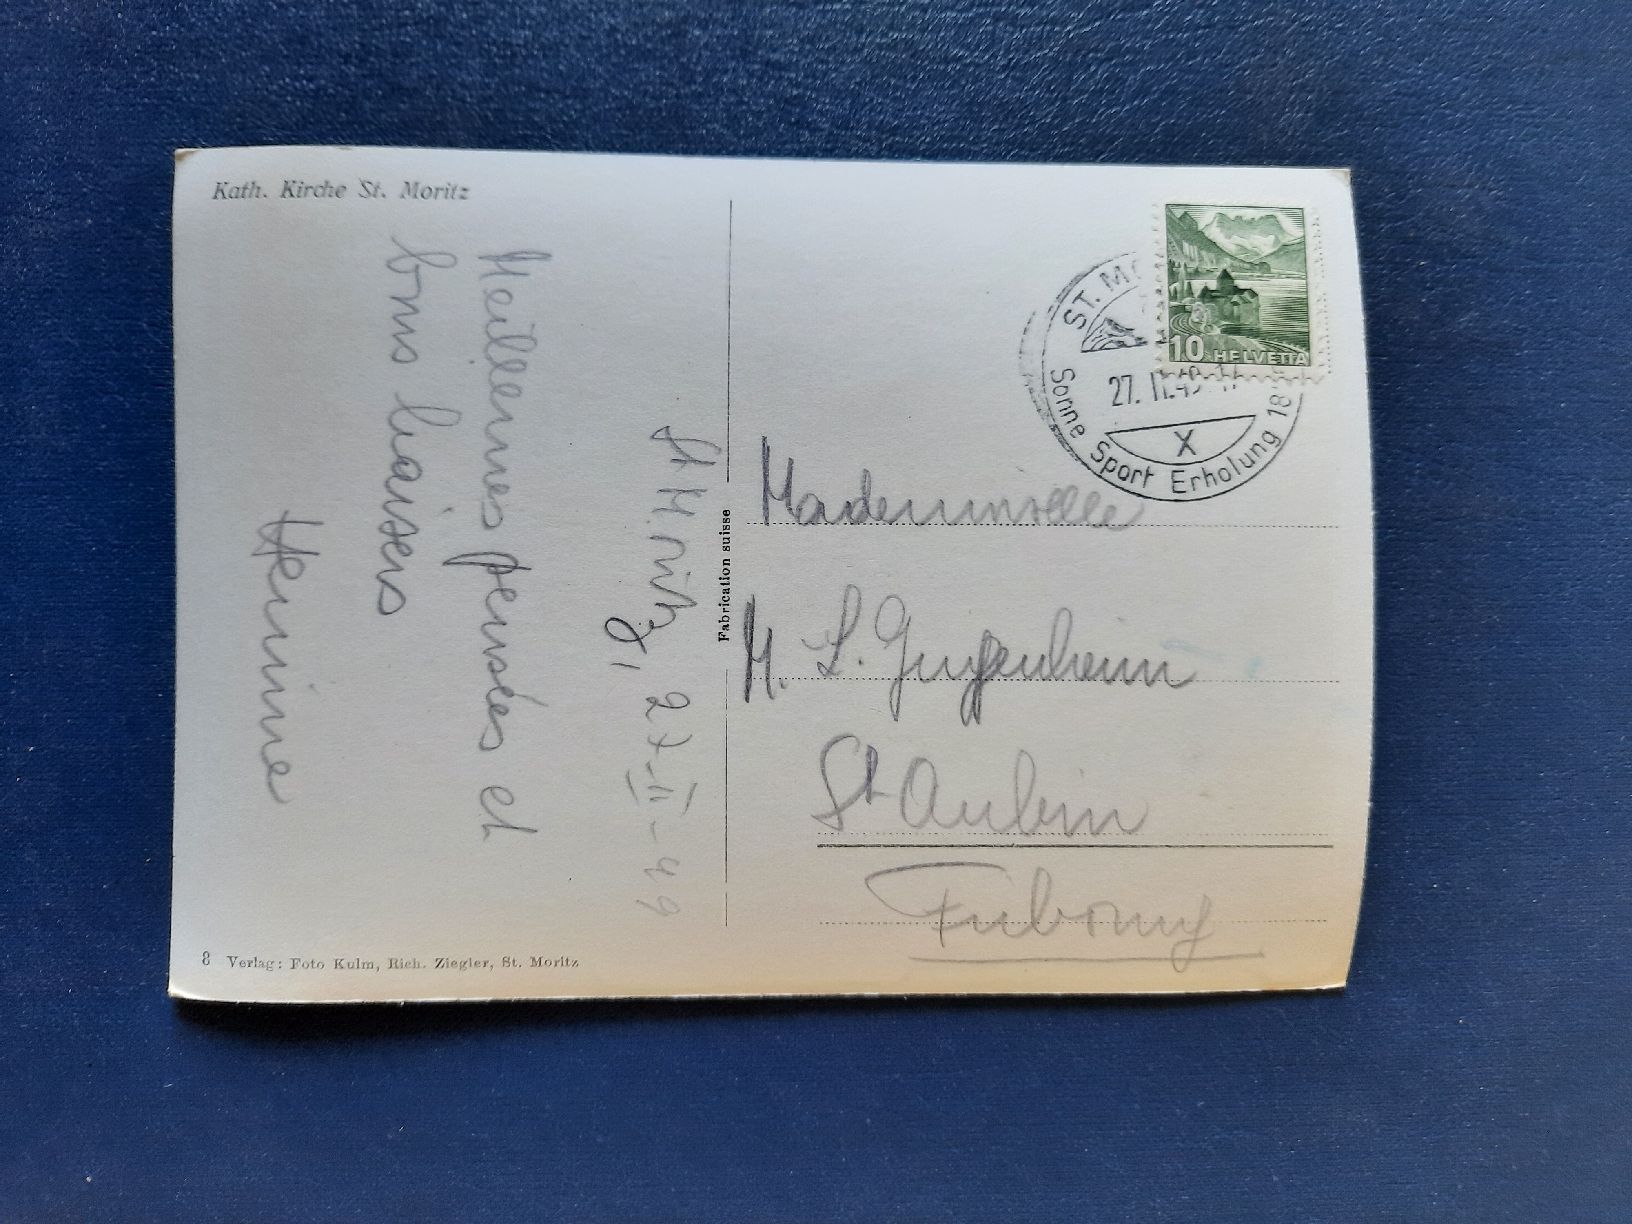 Kath. Kirche St. Moritz
St. Moritz, 27-II-49
Meilleures pensées et
bons baisers
Hermine
8 Verlag: Foto Kulm, Rich. Ziegler, St. Moritz
Fabrication suisse
10 HELVETIA
ST. MO
27. II.49
X
Sonne Sport Erholung 18
Mademoiselle
M. L. Guggenheim
St Aubin
Fribourg